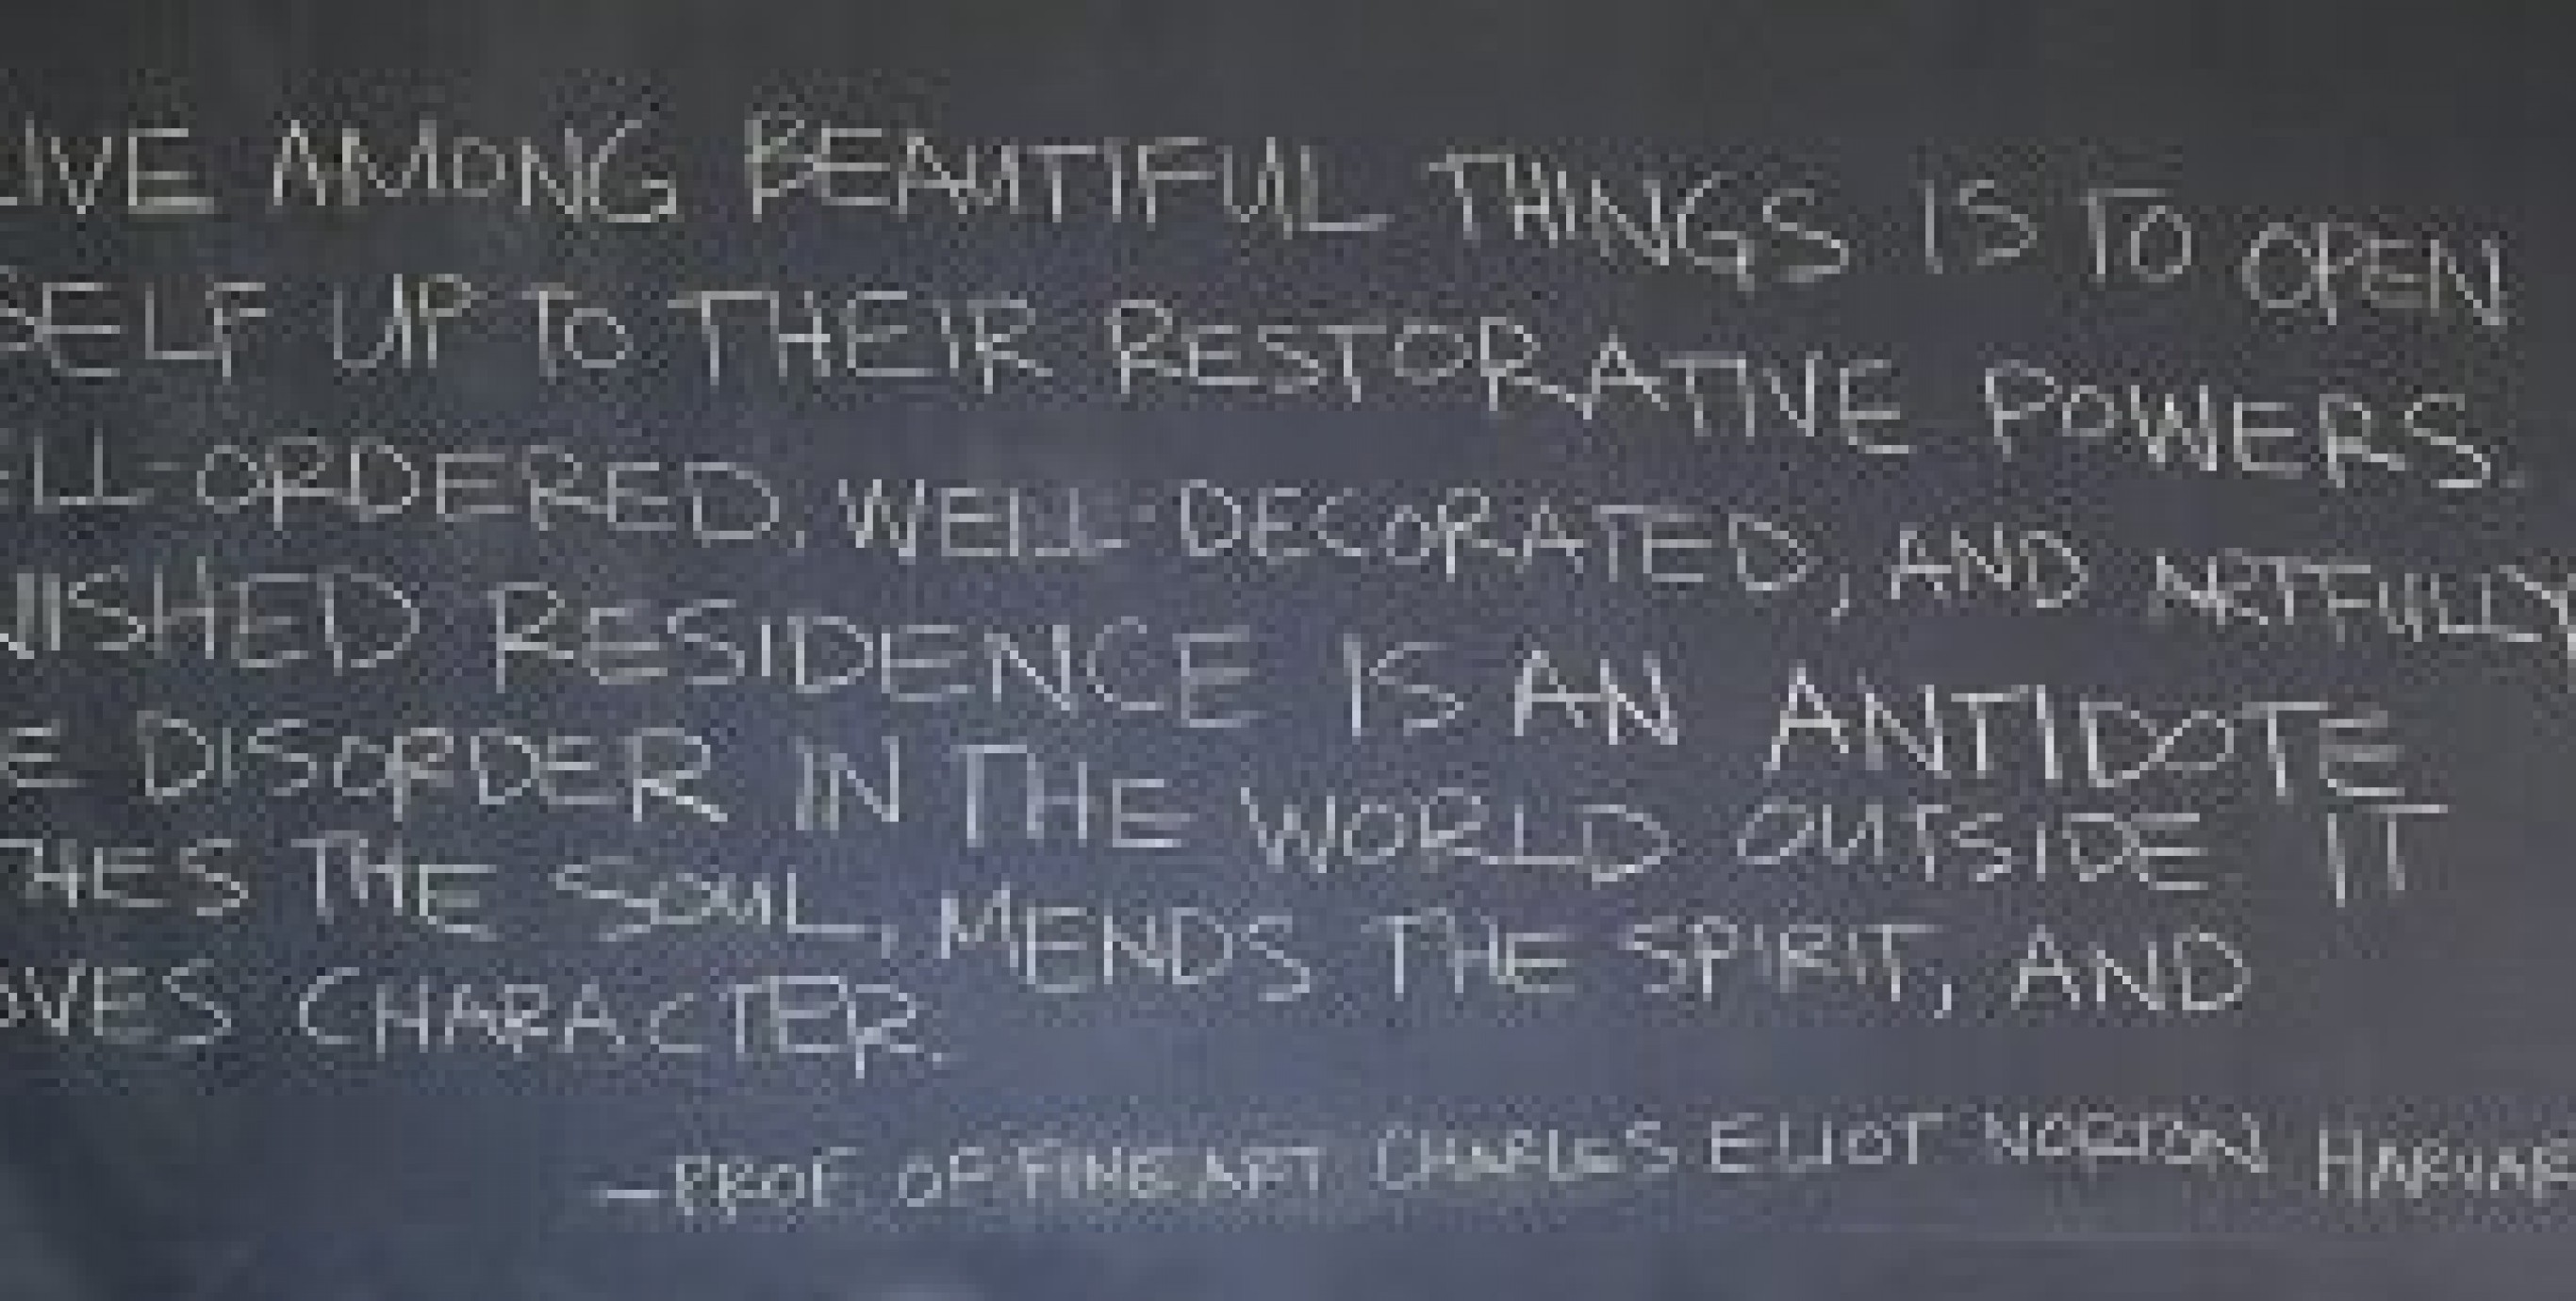 LIVE AMONG BEAUTIFUL THINGS IS TO OPEN
SELF UP TO THEIR RESTORATIVE POWERS.
ELL-ORDERED, WELL-DECORATED, AND ARTFULLY
NISHED RESIDENCE IS AN ANTIDOTE
E DISORDER IN THE WORLD OUTSIDE IT
THES THE SOUL, MENDS THE SPIRIT, AND
OVES CHARACTER.
—PROF. OF FINE ART CHARLES ELIOT NORTON HARVAR